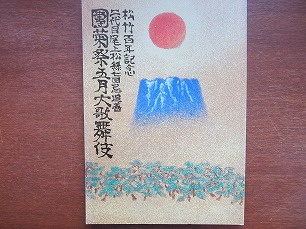 松竹百年記念
二代目尾上松緑七回忌追善
團菊祭五月大歌舞伎